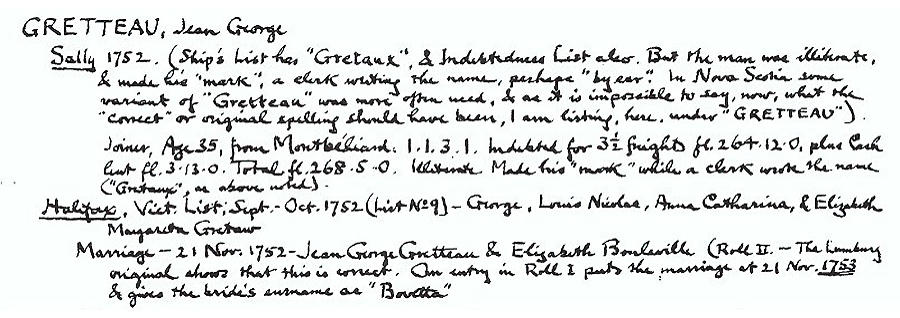 GRETTEAU, Jean George
Sally 1752. (Ship's List has "Gretaux", & Indebtedness List also. But the man was illiterate,
& made his "mark", a clerk writing the name, perhaps "by ear". In Nova Scotia some
variant of "Gretteau" was more often used, & as it is impossible to say, now, what the
"correct" or original spelling should have been, I am listing, here, under "GRETTEAU").
Joiner, Age 35, from Montbéliard. 1.1.3.1. Indebted for 3½ freights fl. 264.12.0, plus Cash
lent fl. 3.13.0. Total fl. 268.5.0. Illiterate. Made his "mark" while a clerk wrote the name
("Gretaux", as above noted).
Halifax, Vict. List; Sept.-Oct. 1752 (List Nº 9) - George, Louis Nicolas, Anna Catharina, & Elizabeth
Margareta Gretaw
Marriage - 21 Nov. 1752 - Jean George Gretteau & Elizabeth Bouleville (Roll II. - The Lunenburg
original shows that this is correct. An entry in Roll I puts the marriage at 21 Nov. 1753
& gives the bride's surname as "Bovetta"